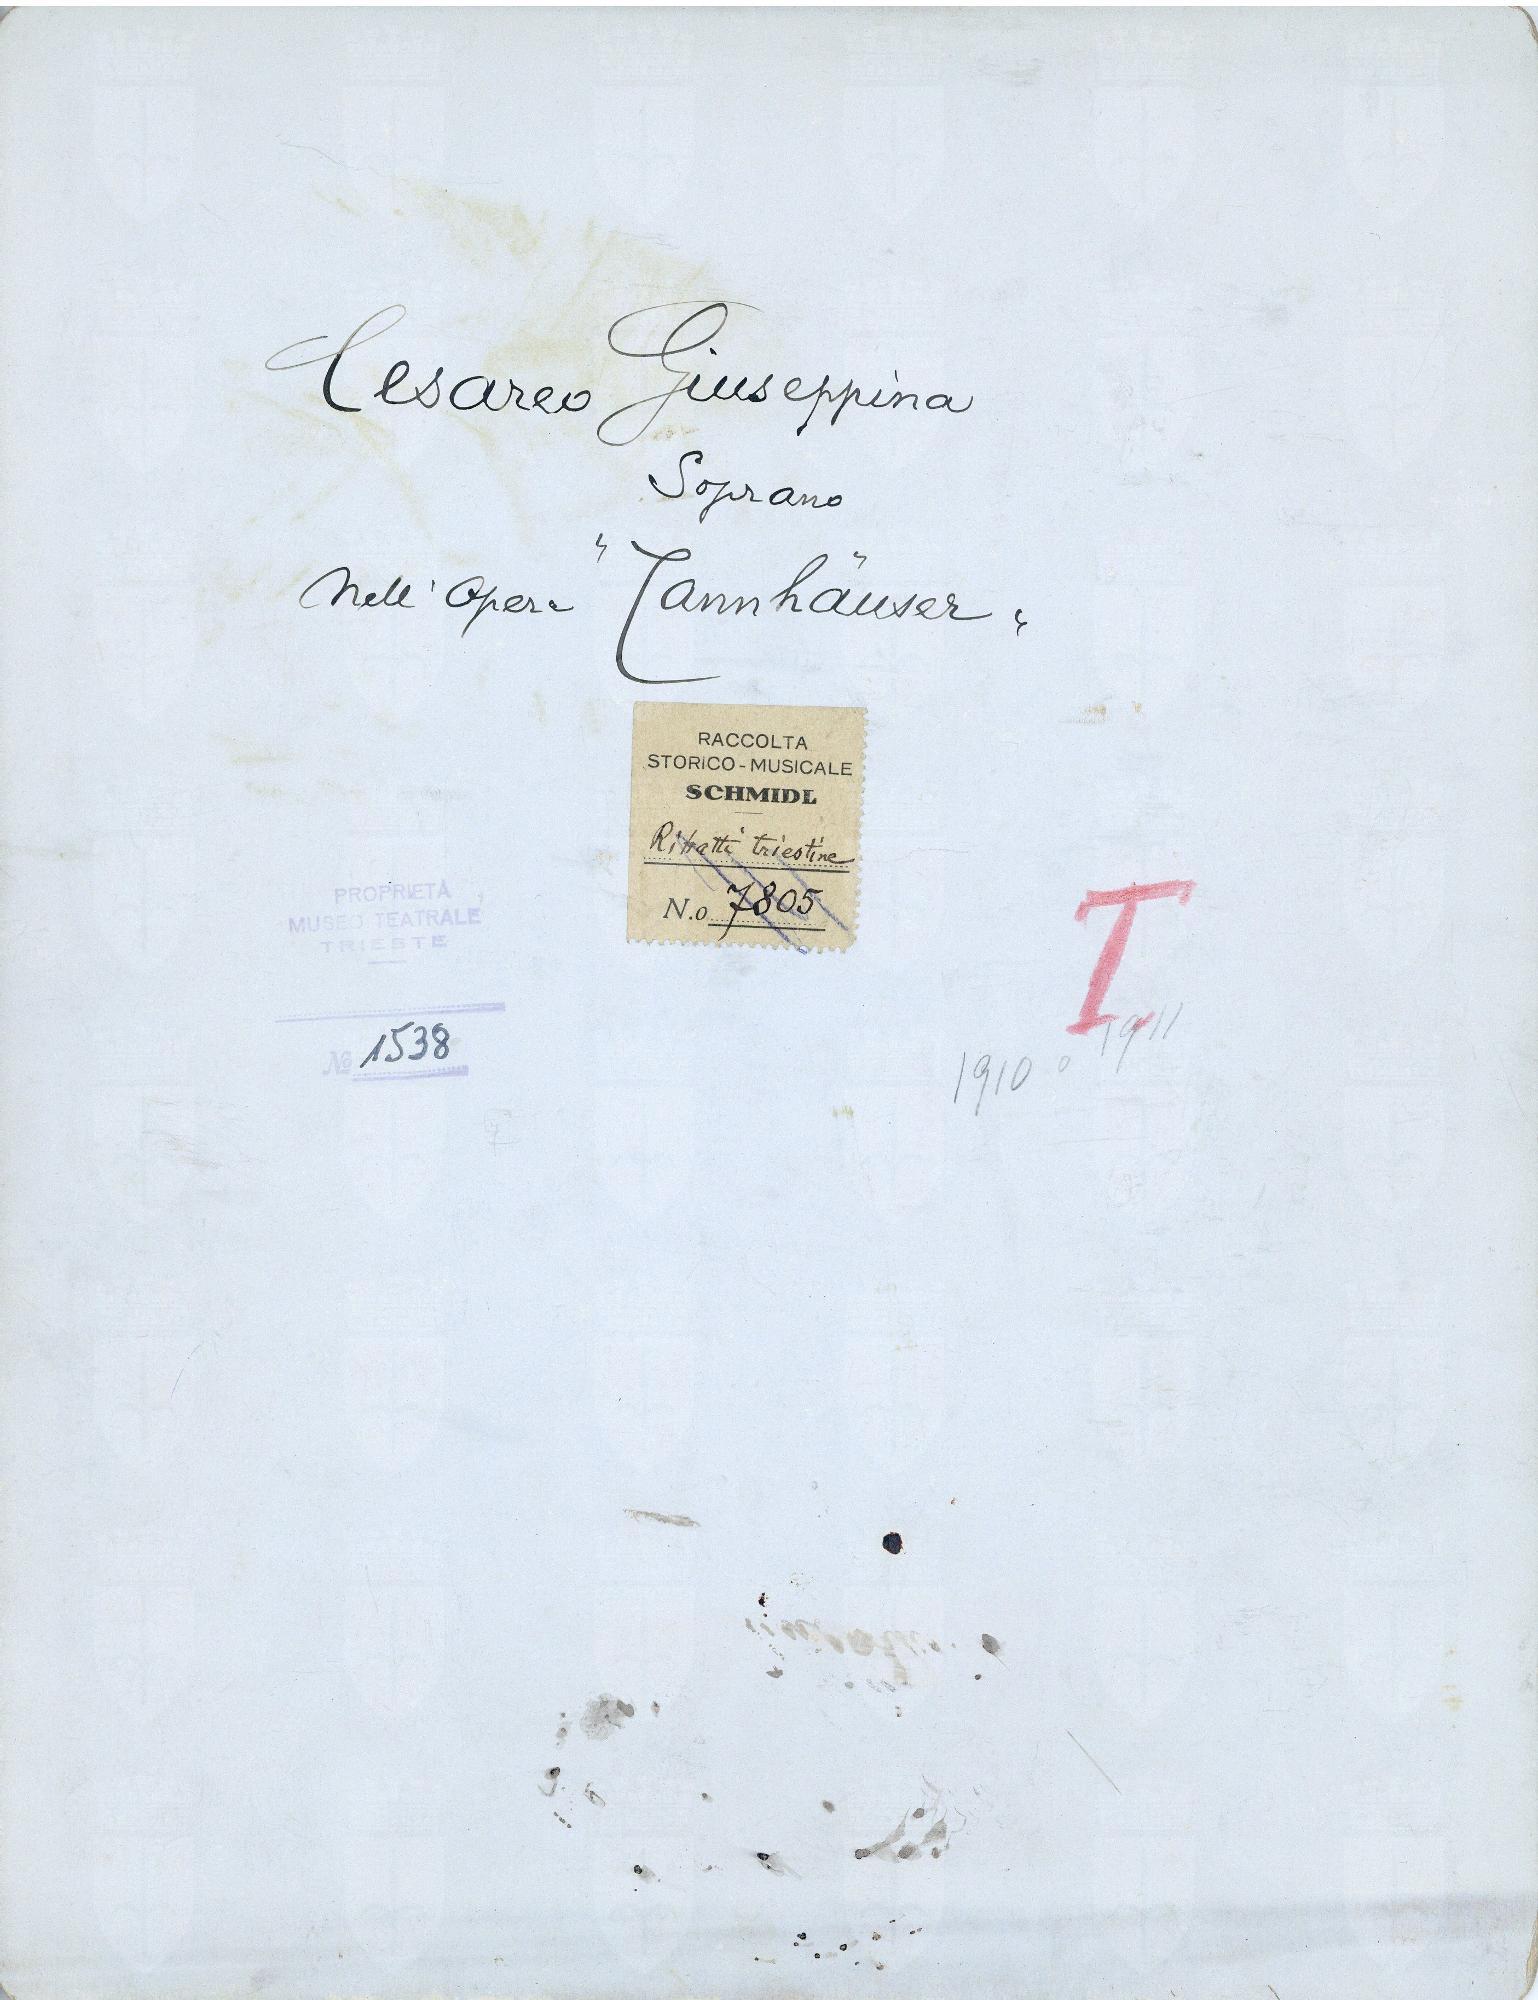 Cesareo Giuseppina
Soprano
Nell' Opera "Tannhäuser"
RACCOLTA
STORICO-MUSICALE
SCHMIDL
Ritratti triestine
N.o 7805
PROPRIETÀ
MUSEO TEATRALE
TRIESTE
No 1538
I
1910 o 1911